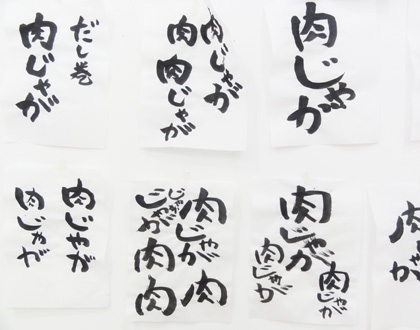 だし巻
肉じゃが
肉じゃが
肉
肉じゃが
肉じゃが
肉じゃが
肉じゃが
肉じゃが
じゃが
じゃが
肉
肉
肉
肉じゃが
肉じゃが
肉じゃが
肉